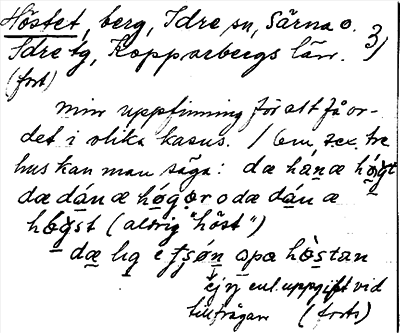 Höstet, berg, Idre sn, Särna o.
Idre tg, Kopparbergs län. 3)
(forts)
min uppfinning för att få or-
det i olika kasus. /Om, t.ex. tre
hus kan man säga: dæ hænæ hø̀gt
dæ dánæ høgør o dæ dánæ
høgst (aldrig "höst")
dæ liq e fsøn əpə hòstan
ej ŋ enl. uppgift vid
tillfrågan (forts)